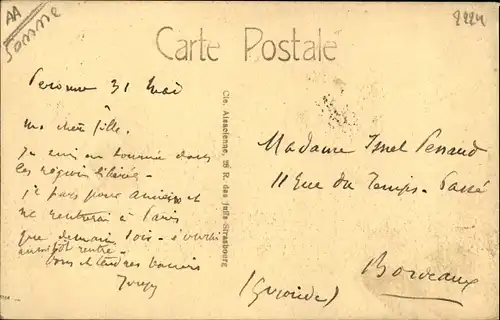 AA
Somme
2224
Carte Postale
Peronne 31 Mai
à
ma chère fille.
Je suis en tournée dans
les régions libérées -
je pars pour Amiens et
ne rentrerai à Paris
que demain soir -
aussitôt rentré -
bons et tendres baisers
Cie. Alsacienne, 28 R. des Juifs-Strasbourg
Madame
11 rue du Temps-Passé
Bordeaux
(Gironde)